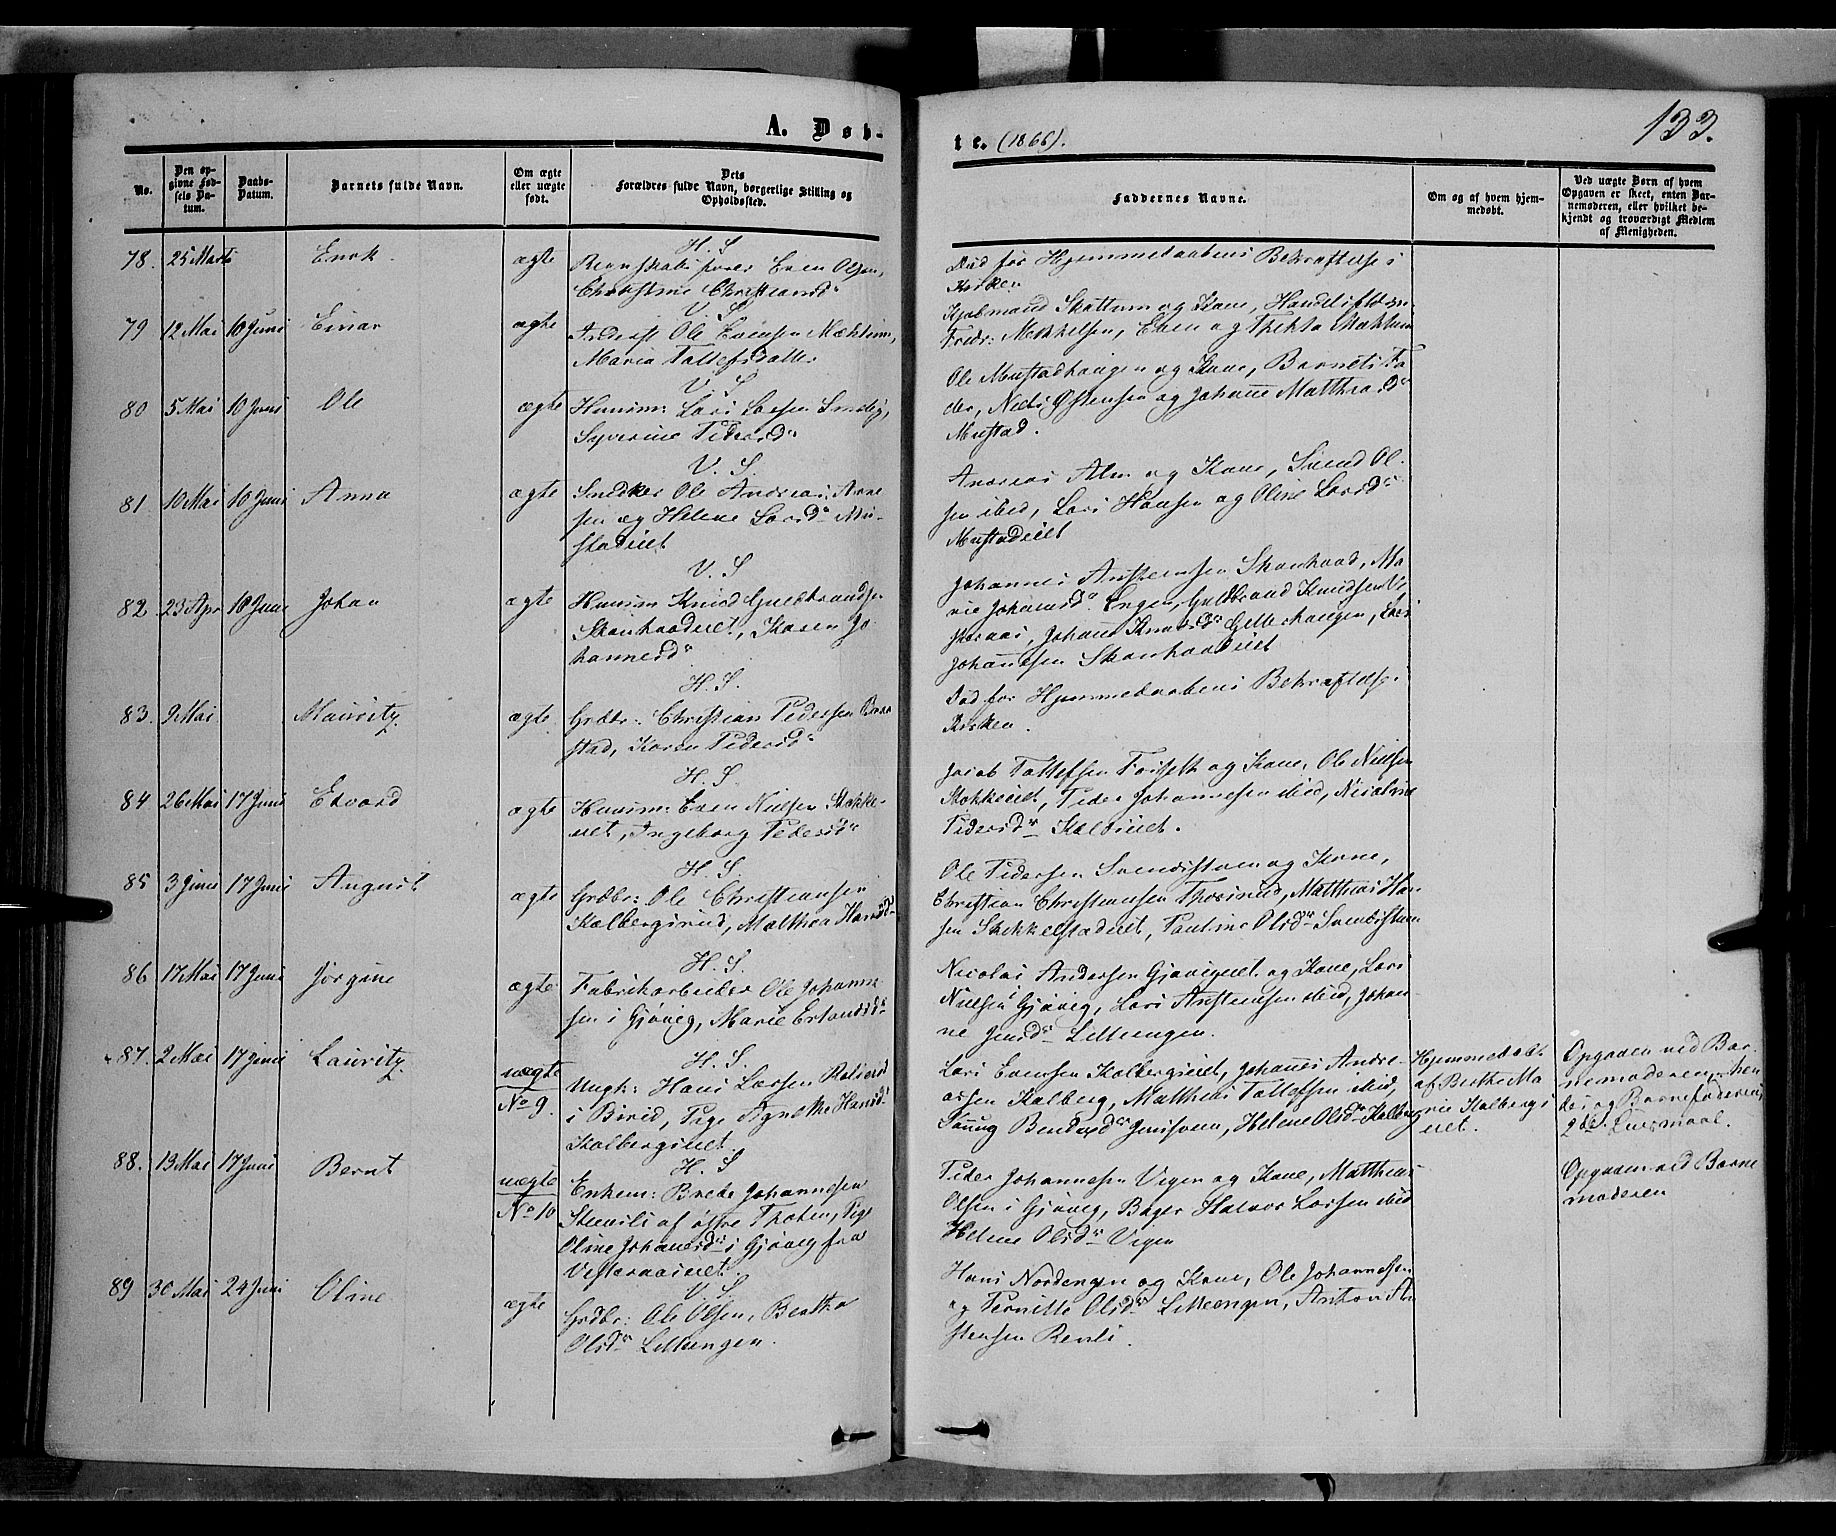 A. Døb-
te. (1866).
133.
No.
Den op-
givne Fød-
sels Da-
tum.
Daabs-
Datum.
Barnets fulde Navn.
Om ægte
eller uægte
født.
Dets
Forældres fulde Navn, borgerlige Stilling og
Opholdssted.
Faddernes Navne.
Om og af hvem hjem-
medøbt.
Ved uægte Børn af hvem
Opgaven er skeet, enten Bar-
nemoderen, eller hvilket be-
kjendt og troværdigt Medlem
af Menigheden.
78. 25 Marts Enok ægte
H. S
Regnskabsfører Even Olsen,
Christine Christiansdr
Død før Hjemmedaabens Bekræftelse i
Kirken
79 12 Mai 10 Juni Einar ægte
V. S
Ole Evensen Mæhlum,
Maria Tollefsdatter
Kjøbmand Skattum og Kone,
Fredr: Mikkelsen, Even og Mæhlum
80 5 Mai 10 Juni Ole ægte
V. S
Huusm: Lars Larsen
Syverine Pedersdr
Ole Mustadhaugen og Kone, Barnets Fa-
der, Niels Østensen og Johanne Matthiasdr
Mustad.
81 10 Mai 10 Juni Anna ægte
V. S.
Snedker Ole Andreas Arne
sen og Helene Larsdr Mu-
stadeiet
Andreas Alm og Kone, Svend Ol-
sen ibid, Lars Hansen og Oline Larsdr
Mustadeiet
82. 23 Apr 10 Juni Johan ægte
V. S
Huusm Knud Guldbrandsen
Skonhaadeiet, Karen Jo-
hannesd
Johannes Austensen Skonhaad, Ma-
rie Johannesdr Engen, Guldbrand Knudsen
Johanne Knudsdr Gillerhaugen, Lars
Johansen Skonhaadeiet
83. 9 Mai Mauritz ægte
H. S.
Grdbr: Christian Pedersen Braa
stad, Karen Pedersdr
Død før Hjemmedaabens Bekræftelse i
Kirken.
84 26 Mai 17 Juni Edvard ægte
H. S.
Huusm: Even Nielsen Stokke-
eiet, Ingeborg Pedersdr
Jacob Tollefsen og Kone, Ole Nielsen
Stokkeeiet, Peder Johannesen ibid, Nicoline
Pedersdr
85 3 Juni 17 Juni August ægte
H. S.
Grdbr: Ole Christiansen
Kalbergsrud, Mathea Hansdr
Ole Pedersen og Kone,
Christian Christiansen Matthias Han-
sen Skikkelstadeiet, Pauline Olsdr
86 17 Mai 17 Juni Jørgine ægte
H. S.
Fabrikarbeider Ole Johanne
sen i Gjøvig, Marie Erlandsdr
Nicolai Andersen Gjøvigeiet og Kone, Lars
Nielsen Gjøvig, Lars Austensen ibid, Johan-
ne Jensdr Lilleengen.
87. 2 Mai 17 Juni Lauritz uægte
No 9.
H. S.
Ungk: Hans Larsen
i Birid, Pige Agnethe Hansdr
Kalbergseiet
Lars Evensen Kalbergseiet, Johannes Andre-
assen Kalberg, Matthias Tollefsen ibid,
Helene Olsdr Kalberg
Hjemmedøbt
af Berthe Ma
rie Kalbergs
eiet.
Opgaven ved Bar-
nemoderen, hen
des og Barnefaderens
2det Leiermaal.
88. 13 Mai 17 Juni Bernt uægte
No 10
H. S
Enkem: Brede Johannesen
Steensli af østre Thoten, Pige
Oline Johannesdr i Gjøvig fra
Vesteraaseiet.
Peder Johannesen Vigen og Kone, Matthias
Olsen i Gjøvig, Bager Halvor Larsen ibid
Helene Olsdr Vigen
Opgaven ved Barne
moderen
89 30 Mai 24 Juni Oline ægte
V. S
Grdbr: Ole Olsen, Berthe
Olsdr Lilleengen.
Hans Nordengen og Kone, Ole Johannesen
og Pernille Olsdr Lilleengen, Anton
stensen